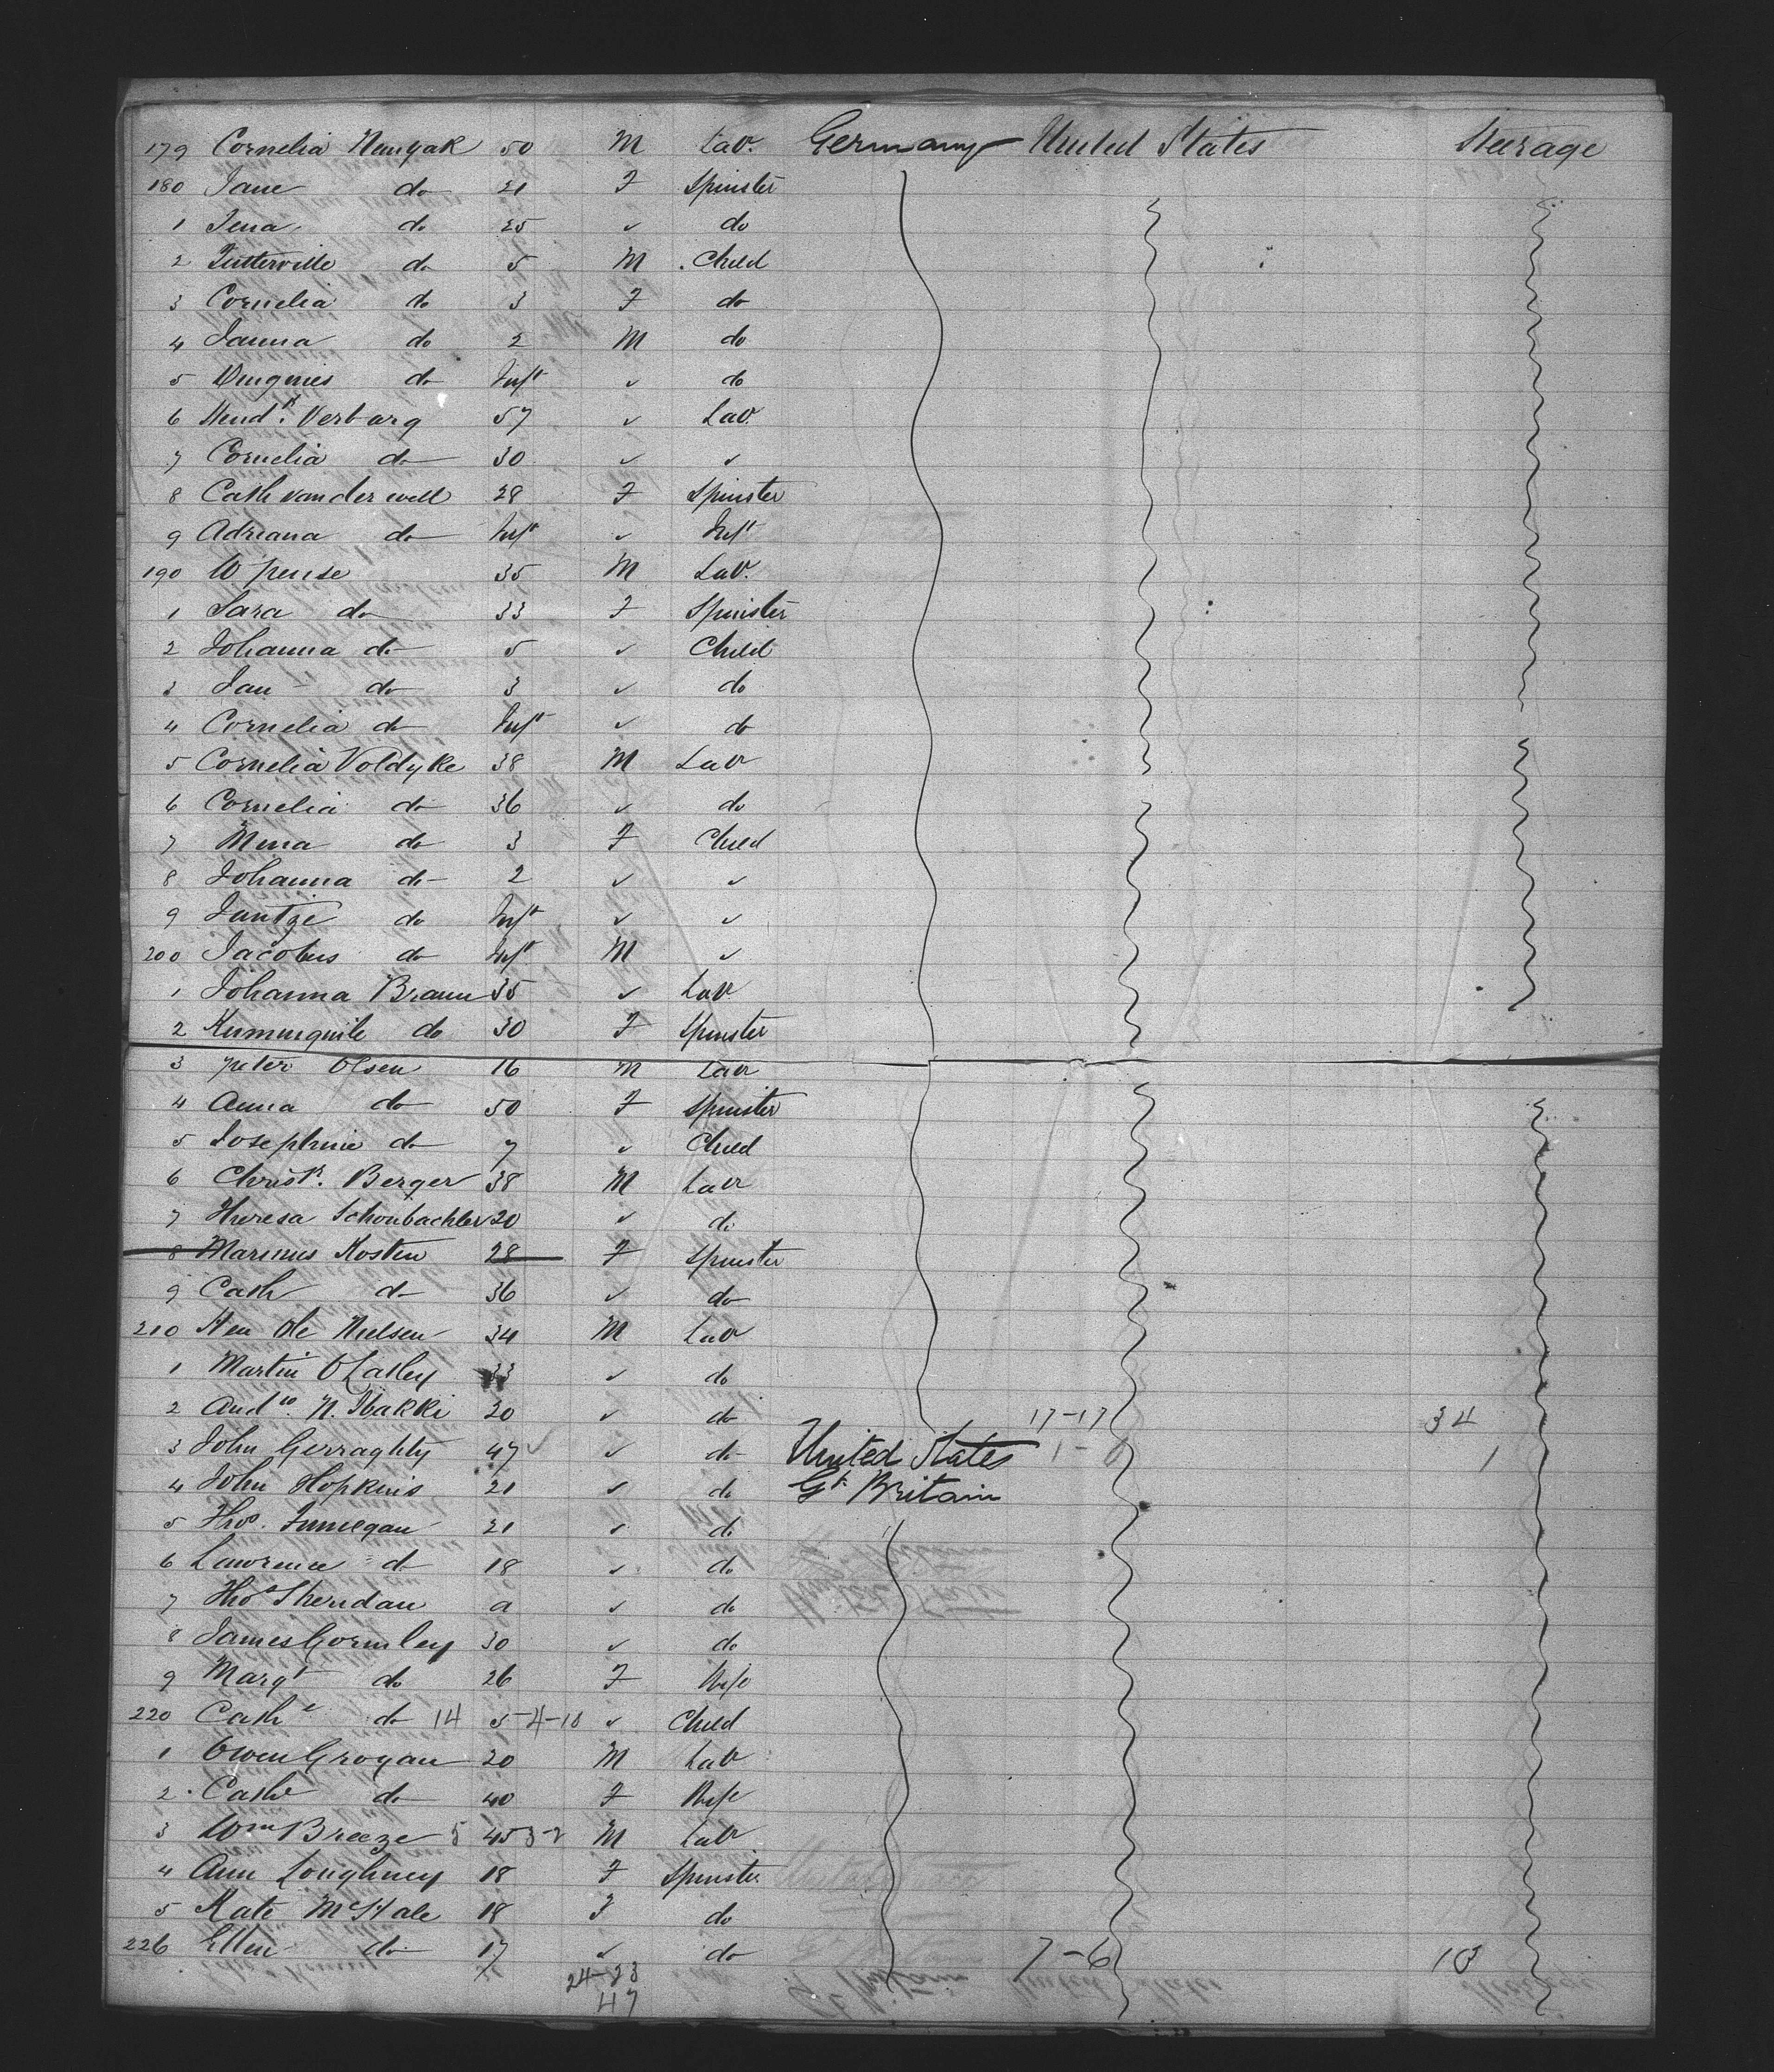 179 Cornelia Nenyak 50 M Lab. Germany United States Steerage
180 Jane do 21 F Spinster
1 Jena do 25 ✓ do
2 Tutterville do 5 M Child
3 Cornelia do 3 F do
4 Janna do 2 M do
5 do Inft ✓ do
6 Hendk. Verbarg 57 ✓ Lab.
7 Cornelia do 30 ✓ ✓
8 Cath van der well 28 F Spinster
9 Adriana do Inft ✓ Inft
190 W Pense 35 M Lab.
1 Sara do 33 F Spinster
2 Johanna do 5 ✓ Child
3 Jan do 3 ✓ do
4 Cornelia do Inft ✓ do
5 Cornelia Voldyke 38 M Lab
6 Cornelia do 36 ✓ do
7 Mena do 3 F Child
8 Johanna do 2 ✓ ✓
9 Jantze do Inft ✓ ✓
200 Jacobus do Inft M ✓
1 Johanna Braun 35 ✓ Lab
2 do 30 F Spinster
3 Peter Olsen 16 M Lab
4 Anna do 50 F Spinster
5 Josephine do 7 ✓ Child
6 Christn. Berger 38 M Lab
7 Theresa Schonbachler 20 ✓ do
8 Marinus Kosten 28 F Spinster
9 Cath do 36 ✓ do
210 Hen Ole Nielsen 34 M Lab
1 Martin 33 ✓ do
2 Andw. N. Ibakki 20 ✓ do 17-17 34
3 John Gerraghty 47 ✓ ✓ do United States 1-0 1
4 John Hopkins 21 ✓ do Gt. Britain
5 Thos. Finnegan 21 ✓ do
6 Lawrence do 18 ✓ do
7 Thos Sheridan a ✓ do
8 James Gormley 30 ✓ do
9 Margt do 26 F Wife
220 Cathe do 14 5-4-10 ✓ Child
1 Owen Grogan 20 M Lab
2 Cathe do 40 F Wife
3 Wm Breeze 5 45 3-2 M Lab
4 Ann Loughney 18 F Spinster
5 Kate McHale 18 F do
226 Ellen do 17 ✓ do 7-6 13
24-23
47